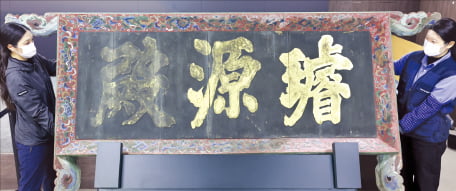 璿源殿